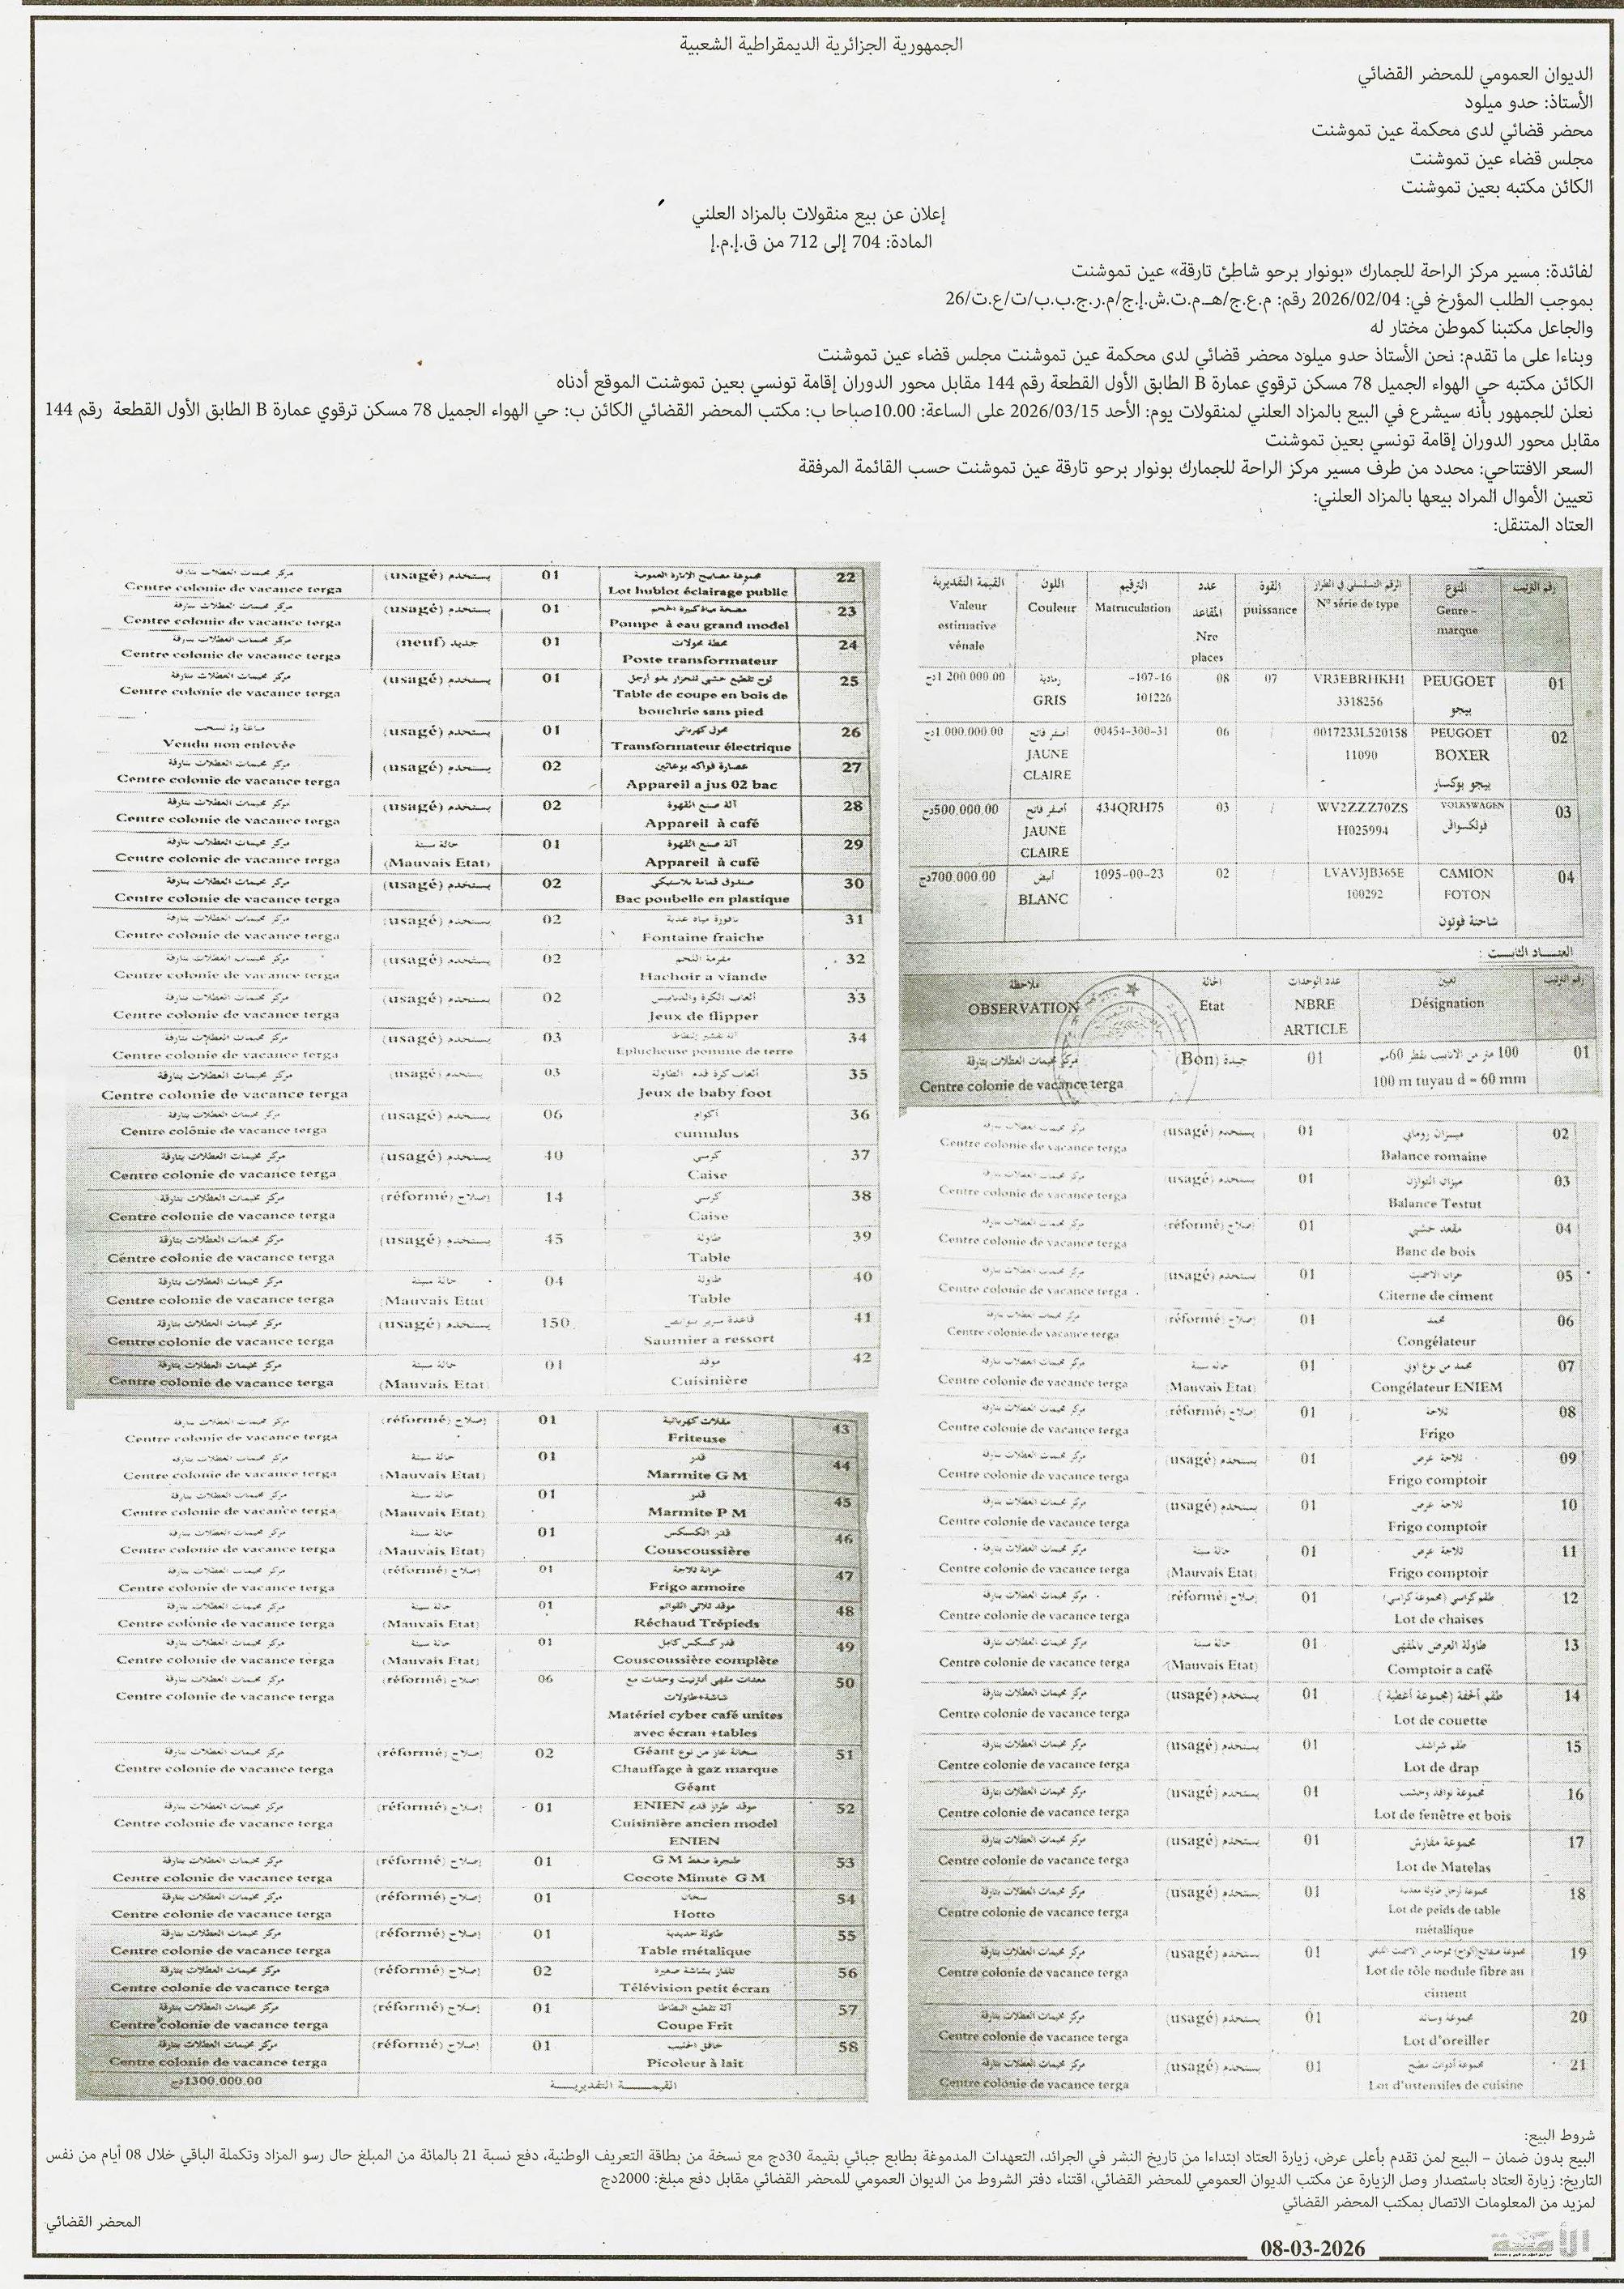 الجمهورية الجزائرية الديمقراطية الشعبية
الديوان العمومي للمحضر القضائي
الأستاذ: حدو ميلود
محضر قضائي لدى محكمة عين تموشنت
مجلس قضاء عين تموشنت
الكائن مكتبه بعين تموشنت
إعلان عن بيع منقولات بالمزاد العلني
المادة: 704 إلى 712 من ق.إ.م.إ
لفائدة: مسير مركز الراحة للجمارك «بونوار برحو شاطئ تارقة» عين تموشنت
بموجب الطلب المؤرخ في: 2026/02/04 رقم: م.ع.ج/هـ.م.ت.ش.إ.ج/م.ر.ج.ب.ب/ت/ع.ت/26
والجاعل مكتبنا كموطن مختار له
وبناءا على ما تقدم: نحن الأستاذ حدو ميلود محضر قضائي لدى محكمة عين تموشنت مجلس قضاء عين تموشنت
الكائن مكتبه حي الهواء الجميل 78 مسكن ترقوي عمارة B الطابق الأول القطعة رقم 144 مقابل محور الدوران إقامة تونسي بعين تموشنت الموقع أدناه
نعلن للجمهور بأنه سيشرع في البيع بالمزاد العلني لمنقولات يوم: الأحد 2026/03/15 على الساعة: 10.00صباحا ب: مكتب المحضر القضائي الكائن ب: حي الهواء الجميل 78 مسكن ترقوي عمارة B الطابق الأول القطعة رقم 144
مقابل محور الدوران إقامة تونسي بعين تموشنت
السعر الافتتاحي: محدد من طرف مسير مركز الراحة للجمارك بونوار برحو تارقة عين تموشنت حسب القائمة المرفقة
تعيين الأموال المراد بيعها بالمزاد العلني:
العتاد المتنقل:
رقم الترتيب النوع الرقم التسلسلي في الطراز القوة عدد الترقيم اللون القيمة التقديرية
Genre – N° série de type puissance المقاعد Matruculation Couleur Valeur
marque Nre estimative
places vénale
01 PEUGOET VR3EBRHKH1 07 08 107-16- رمادية 1 200.000.00دج
بيجو 3318256 101226 GRIS
02 PEUGOET 0017233L520158 / 06 00454-300-31 أصفر فاتح 1.000.000.00دج
BOXER 11090 JAUNE
بيجو بوكسار CLAIRE
03 VOLKSWAGEN WV2ZZZ70ZS / 03 434QRH75 أصفر فاتح 500.000.00دج
فولكسواقن H025994 JAUNE
CLAIRE
04 CAMION LVAV3JB365E / 02 1095-00-23 أبيض 700.000.00دج
FOTON 100292 BLANC
شاحنة فوتون
العتـــاد الثابـــت :
رقم الترتيب تعيين عدد الوحدات الحالة ملاحظة
Désignation NBRE Etat OBSERVATION
ARTICLE
01 100 متر من الانابيب بقطر 60مم 01 جيدة (Bon) مركز مخيمات العطلات بتارقة
100 m tuyau d = 60 mm Centre colonie de vacance terga
02 ميسزان روماني 01 يستخدم (usagé) مركز مخيمات العطلات بتارقة
Balance romaine Centre colonie de vacance terga
03 ميزان التوازن 01 يستخدم (usagé) مركز مخيمات العطلات بتارقة
Balance Testut Centre colonie de vacance terga
04 مقعد خشبي 01 إصلاح (réformé) مركز مخيمات العطلات بتارقة
Banc de bois Centre colonie de vacance terga
05 خزان الاسمنت 01 يستخدم (usagé) مركز مخيمات العطلات بتارقة
Citerne de ciment Centre colonie de vacance terga
06 مجمد 01 إصلاح (réformé) مركز مخيمات العطلات بتارقة
Congélateur Centre colonie de vacance terga
07 مجمد من نوع 01 حالة سيئة مركز مخيمات العطلات بتارقة
Congélateur ENIEM (Mauvais Etat) Centre colonie de vacance terga
08 ثلاجة 01 إصلاح (réformé) مركز مخيمات العطلات بتارقة
Frigo Centre colonie de vacance terga
09 ثلاجة عرض 01 يستخدم (usagé) مركز مخيمات العطلات بتارقة
Frigo comptoir Centre colonie de vacance terga
10 ثلاجة عرض 01 يستخدم (usagé) مركز مخيمات العطلات بتارقة
Frigo comptoir Centre colonie de vacance terga
11 ثلاجة عرض 01 حالة سيئة مركز مخيمات العطلات بتارقة
Frigo comptoir (Mauvais Etat) Centre colonie de vacance terga
12 طقم كراسي (مجموعة كراسي) 01 إصلاح (réformé) مركز مخيمات العطلات بتارقة
Lot de chaises Centre colonie de vacance terga
13 طاولة العرض بالمقهى 01 حالة سيئة مركز مخيمات العطلات بتارقة
Comptoir a café (Mauvais Etat) Centre colonie de vacance terga
14 طقم ألحفة (مجموعة أغطية) 01 يستخدم (usagé) مركز مخيمات العطلات بتارقة
Lot de couette Centre colonie de vacance terga
15 طقم شراشف 01 يستخدم (usagé) مركز مخيمات العطلات بتارقة
Lot de drap Centre colonie de vacance terga
16 مجموعة نوافذ وخشب 01 يستخدم (usagé) مركز مخيمات العطلات بتارقة
Lot de fenêtre et bois Centre colonie de vacance terga
17 مجموعة مفارش 01 يستخدم (usagé) مركز مخيمات العطلات بتارقة
Lot de Matelas Centre colonie de vacance terga
18 مجموعة أرجل طاولة معدنية 01 يستخدم (usagé) مركز مخيمات العطلات بتارقة
Lot de peids de table Centre colonie de vacance terga
métallique
19 مجموعة صفائح(ألواح) مموجة من الاسمنت الليفي 01 يستخدم (usagé) مركز مخيمات العطلات بتارقة
Lot de tôle nodule fibre au Centre colonie de vacance terga
ciment
20 مجموعة وسائد 01 يستخدم (usagé) مركز مخيمات العطلات بتارقة
Lot d'oreiller Centre colonie de vacance terga
21 مجموعة أدوات مطبخ 01 يستخدم (usagé) مركز مخيمات العطلات بتارقة
Lot d'ustensiles de cuisine Centre colonie de vacance terga
22 مجموعة مصابيح الإنارة العمومية 01 يستخدم (usagé) مركز مخيمات العطلات بتارقة
Lot hublot éclairage public Centre colonie de vacance terga
23 مضخة مياه كبيرة الحجم 01 يستخدم (usagé) مركز مخيمات العطلات بتارقة
Pompe à eau grand model Centre colonie de vacance terga
24 محطة محولات 01 جديد (neuf) مركز مخيمات العطلات بتارقة
Poste transformateur Centre colonie de vacance terga
25 لوح تقطيع خشبي للجزار بدو أرجل 01 يستخدم (usagé) مركز مخيمات العطلات بتارقة
Table de coupe en bois de Centre colonie de vacance terga
bouchrie sans pied
26 محول كهربائي 01 يستخدم (usagé)
Transformateur électrique Vendu non enlevée
27 عصارة فواكه بوعائين 02 يستخدم (usagé) مركز مخيمات العطلات بتارقة
Appareil a jus 02 bac Centre colonie de vacance terga
28 آلة صنع القهوة 02 يستخدم (usagé) مركز مخيمات العطلات بتارقة
Appareil à café Centre colonie de vacance terga
29 آلة صنع القهوة 01 حالة سيئة مركز مخيمات العطلات بتارقة
Appareil à café (Mauvais Etat) Centre colonie de vacance terga
30 صندوق قمامة بلاستيكي 02 يستخدم (usagé) مركز مخيمات العطلات بتارقة
Bac poubelle en plastique Centre colonie de vacance terga
31 نافورة مياه عذبة 02 يستخدم (usagé) مركز مخيمات العطلات بتارقة
Fontaine fraiche Centre colonie de vacance terga
32 مفرمة اللحم 02 يستخدم (usagé) مركز مخيمات العطلات بتارقة
Hachoir a viande Centre colonie de vacance terga
33 ألعاب الكرة والدبابيس 02 يستخدم (usagé) مركز مخيمات العطلات بتارقة
Jeux de flipper Centre colonie de vacance terga
34 آلة تقشير البطاطا 03 يستخدم (usagé) مركز مخيمات العطلات بتارقة
Eplucheuse pomme de terre Centre colonie de vacance terga
35 ألعاب كرة قدم الطاولة 03 يستخدم (usagé) مركز مخيمات العطلات بتارقة
Jeux de baby foot Centre colonie de vacance terga
36 أكوام 06 يستخدم (usagé) مركز مخيمات العطلات بتارقة
cumulus Centre colonie de vacance terga
37 كرسي 40 يستخدم (usagé) مركز مخيمات العطلات بتارقة
Caise Centre colonie de vacance terga
38 كرسي 14 إصلاح (réformé) مركز مخيمات العطلات بتارقة
Caise Centre colonie de vacance terga
39 طاولة 45 يستخدم (usagé) مركز مخيمات العطلات بتارقة
Table Centre colonie de vacance terga
40 طاولة 04 حالة سيئة مركز مخيمات العطلات بتارقة
Table (Mauvais Etat) Centre colonie de vacance terga
41 قاعدة سرير بنوابض 150 يستخدم (usagé) مركز مخيمات العطلات بتارقة
Saumier a ressort Centre colonie de vacance terga
42 موقد 01 حالة سيئة مركز مخيمات العطلات بتارقة
Cuisinière (Mauvais Etat) Centre colonie de vacance terga
43 مقلات كهربائية 01 إصلاح (réformé) مركز مخيمات العطلات بتارقة
Friteuse Centre colonie de vacance terga
44 قدر 01 حالة سيئة مركز مخيمات العطلات بتارقة
Marmite G M (Mauvais Etat) Centre colonie de vacance terga
45 قدر 01 حالة سيئة مركز مخيمات العطلات بتارقة
Marmite P M (Mauvais Etat) Centre colonie de vacance terga
46 قدر الكسكس 01 حالة سيئة مركز مخيمات العطلات بتارقة
Couscoussière (Mauvais Etat) Centre colonie de vacance terga
47 خزانة ثلاجة 01 إصلاح (réformé) مركز مخيمات العطلات بتارقة
Frigo armoire Centre colonie de vacance terga
48 موقد ثلاثي القوائم 01 حالة سيئة مركز مخيمات العطلات بتارقة
Réchaud Trépieds (Mauvais Etat) Centre colonie de vacance terga
49 قدر كسكس كامل 01 حالة سيئة مركز مخيمات العطلات بتارقة
Couscoussière complète (Mauvais Etat) Centre colonie de vacance terga
50 معدات مقهى أنترنيت وحدات مع 06 إصلاح (réformé) مركز مخيمات العطلات بتارقة
شاشة+طاولات Centre colonie de vacance terga
Matériel cyber café unites
avec écran +tables
51 سخانة غاز من نوع Géant 02 إصلاح (réformé) مركز مخيمات العطلات بتارقة
Chauffage à gaz marque Centre colonie de vacance terga
Géant
52 موقد طراز قديم ENIEN 01 إصلاح (réformé) مركز مخيمات العطلات بتارقة
Cuisinière ancien model Centre colonie de vacance terga
ENIEN
53 طنجرة ضغط G M 01 إصلاح (réformé) مركز مخيمات العطلات بتارقة
Cocote Minute G M Centre colonie de vacance terga
54 سخان 01 إصلاح (réformé) مركز مخيمات العطلات بتارقة
Hotto Centre colonie de vacance terga
55 طاولة حديدية 01 إصلاح (réformé) مركز مخيمات العطلات بتارقة
Table métalique Centre colonie de vacance terga
56 تلفاز بشاشة صغيرة 02 إصلاح (réformé) مركز مخيمات العطلات بتارقة
Télévision petit écran Centre colonie de vacance terga
57 آلة تقطيع البطاطا 01 إصلاح (réformé) مركز مخيمات العطلات بتارقة
Coupe Frit Centre colonie de vacance terga
58 خافق الحليب 01 إصلاح (réformé) مركز مخيمات العطلات بتارقة
Picoleur à lait Centre colonie de vacance terga
القيمـــة التقديريـــة 1300.000.00دج
شروط البيع:
البيع بدون ضمان – البيع لمن تقدم بأعلى عرض، زيارة العتاد ابتداءا من تاريخ النشر في الجرائد، التعهدات المدموغة بطابع جبائي بقيمة 30دج مع نسخة من بطاقة التعريف الوطنية، دفع نسبة 21 بالمائة من المبلغ حال رسو المزاد وتكملة الباقي خلال 08 أيام من نفس
التاريخ: زيارة العتاد باستصدار وصل الزيارة عن مكتب الديوان العمومي للمحضر القضائي، اقتناء دفتر الشروط من الديوان العمومي للمحضر القضائي مقابل دفع مبلغ: 2000دج
لمزيد من المعلومات الاتصال بمكتب المحضر القضائي
المحضر القضائي
08-03-2026